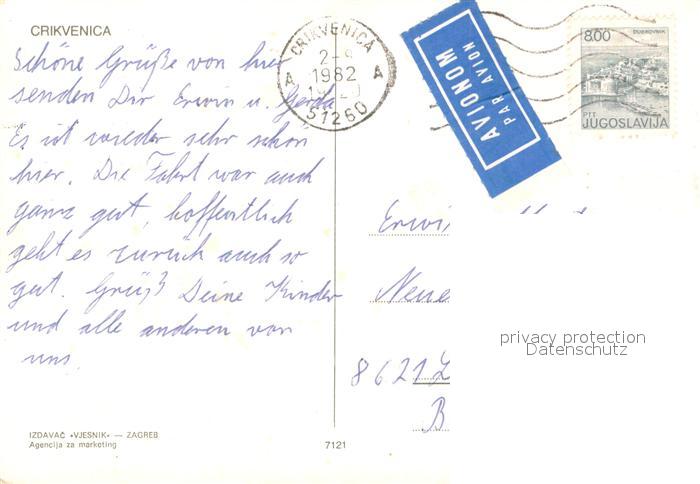 CRIKVENICA
Schöne Grüße von hier
senden Dir Erwin u. Gerda
Es ist wieder sehr schön
hier. Die Fahrt war auch
ganz gut, hoffentlich
geht es zurück auch so
gut. Grüß Deine Kinder
und alle anderen von
uns.
IZDAVAČ «VJESNIK» — ZAGREB
Agencija za marketing
7121
CRIKVENICA
2-9
1982
A A
51260
AVIONOM
PAR AVION
8.00
DUBROVNIK
PTT
JUGOSLAVIJA
Erwi
Neue
8621
B
privacy protection
Datenschutz